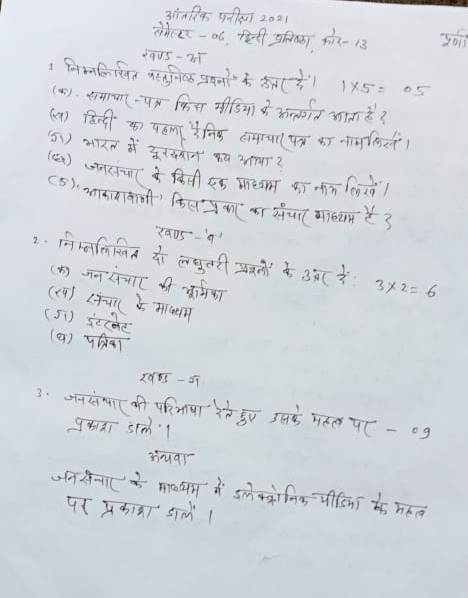 आंतरिक परीक्षा 2021
सेमेस्टर - 06, हिंदी प्रतिष्ठा, कोर - 13
खण्ड - अ
1 निम्नलिखित वस्तुनिष्ठ प्रश्नों के उत्तर दें। 1x5 = 05
(क). समाचार-पत्र किस मीडिया के अन्तर्गत आता है?
(ख) हिन्दी का पहला दैनिक समाचार पत्र का नाम लिखें।
(ग) भारत में दूरदर्शन कब आया?
(घ) जनसंचार के किसी एक माध्यम का नाम लिखें।
(ङ). 'आकाशवाणी' किस प्रकार का संचार माध्यम है?
खण्ड - 'ब'
2. निम्नलिखित दो लघुत्तरी प्रश्नों के उत्तर दें: 3x2=6
(क) जनसंचार की भूमिका
(ख) संचार के माध्यम
(ग) इंटरनेट
(घ) पत्रिका
खण्ड - स
3. जनसंचार की परिभाषा देते हुए उसके महत्व पर - 09
प्रकाश डालें।
अथवा
जनसंचार के माध्यम में इलेक्ट्रोनिक मीडिया के महत्व
पर प्रकाश डालें।